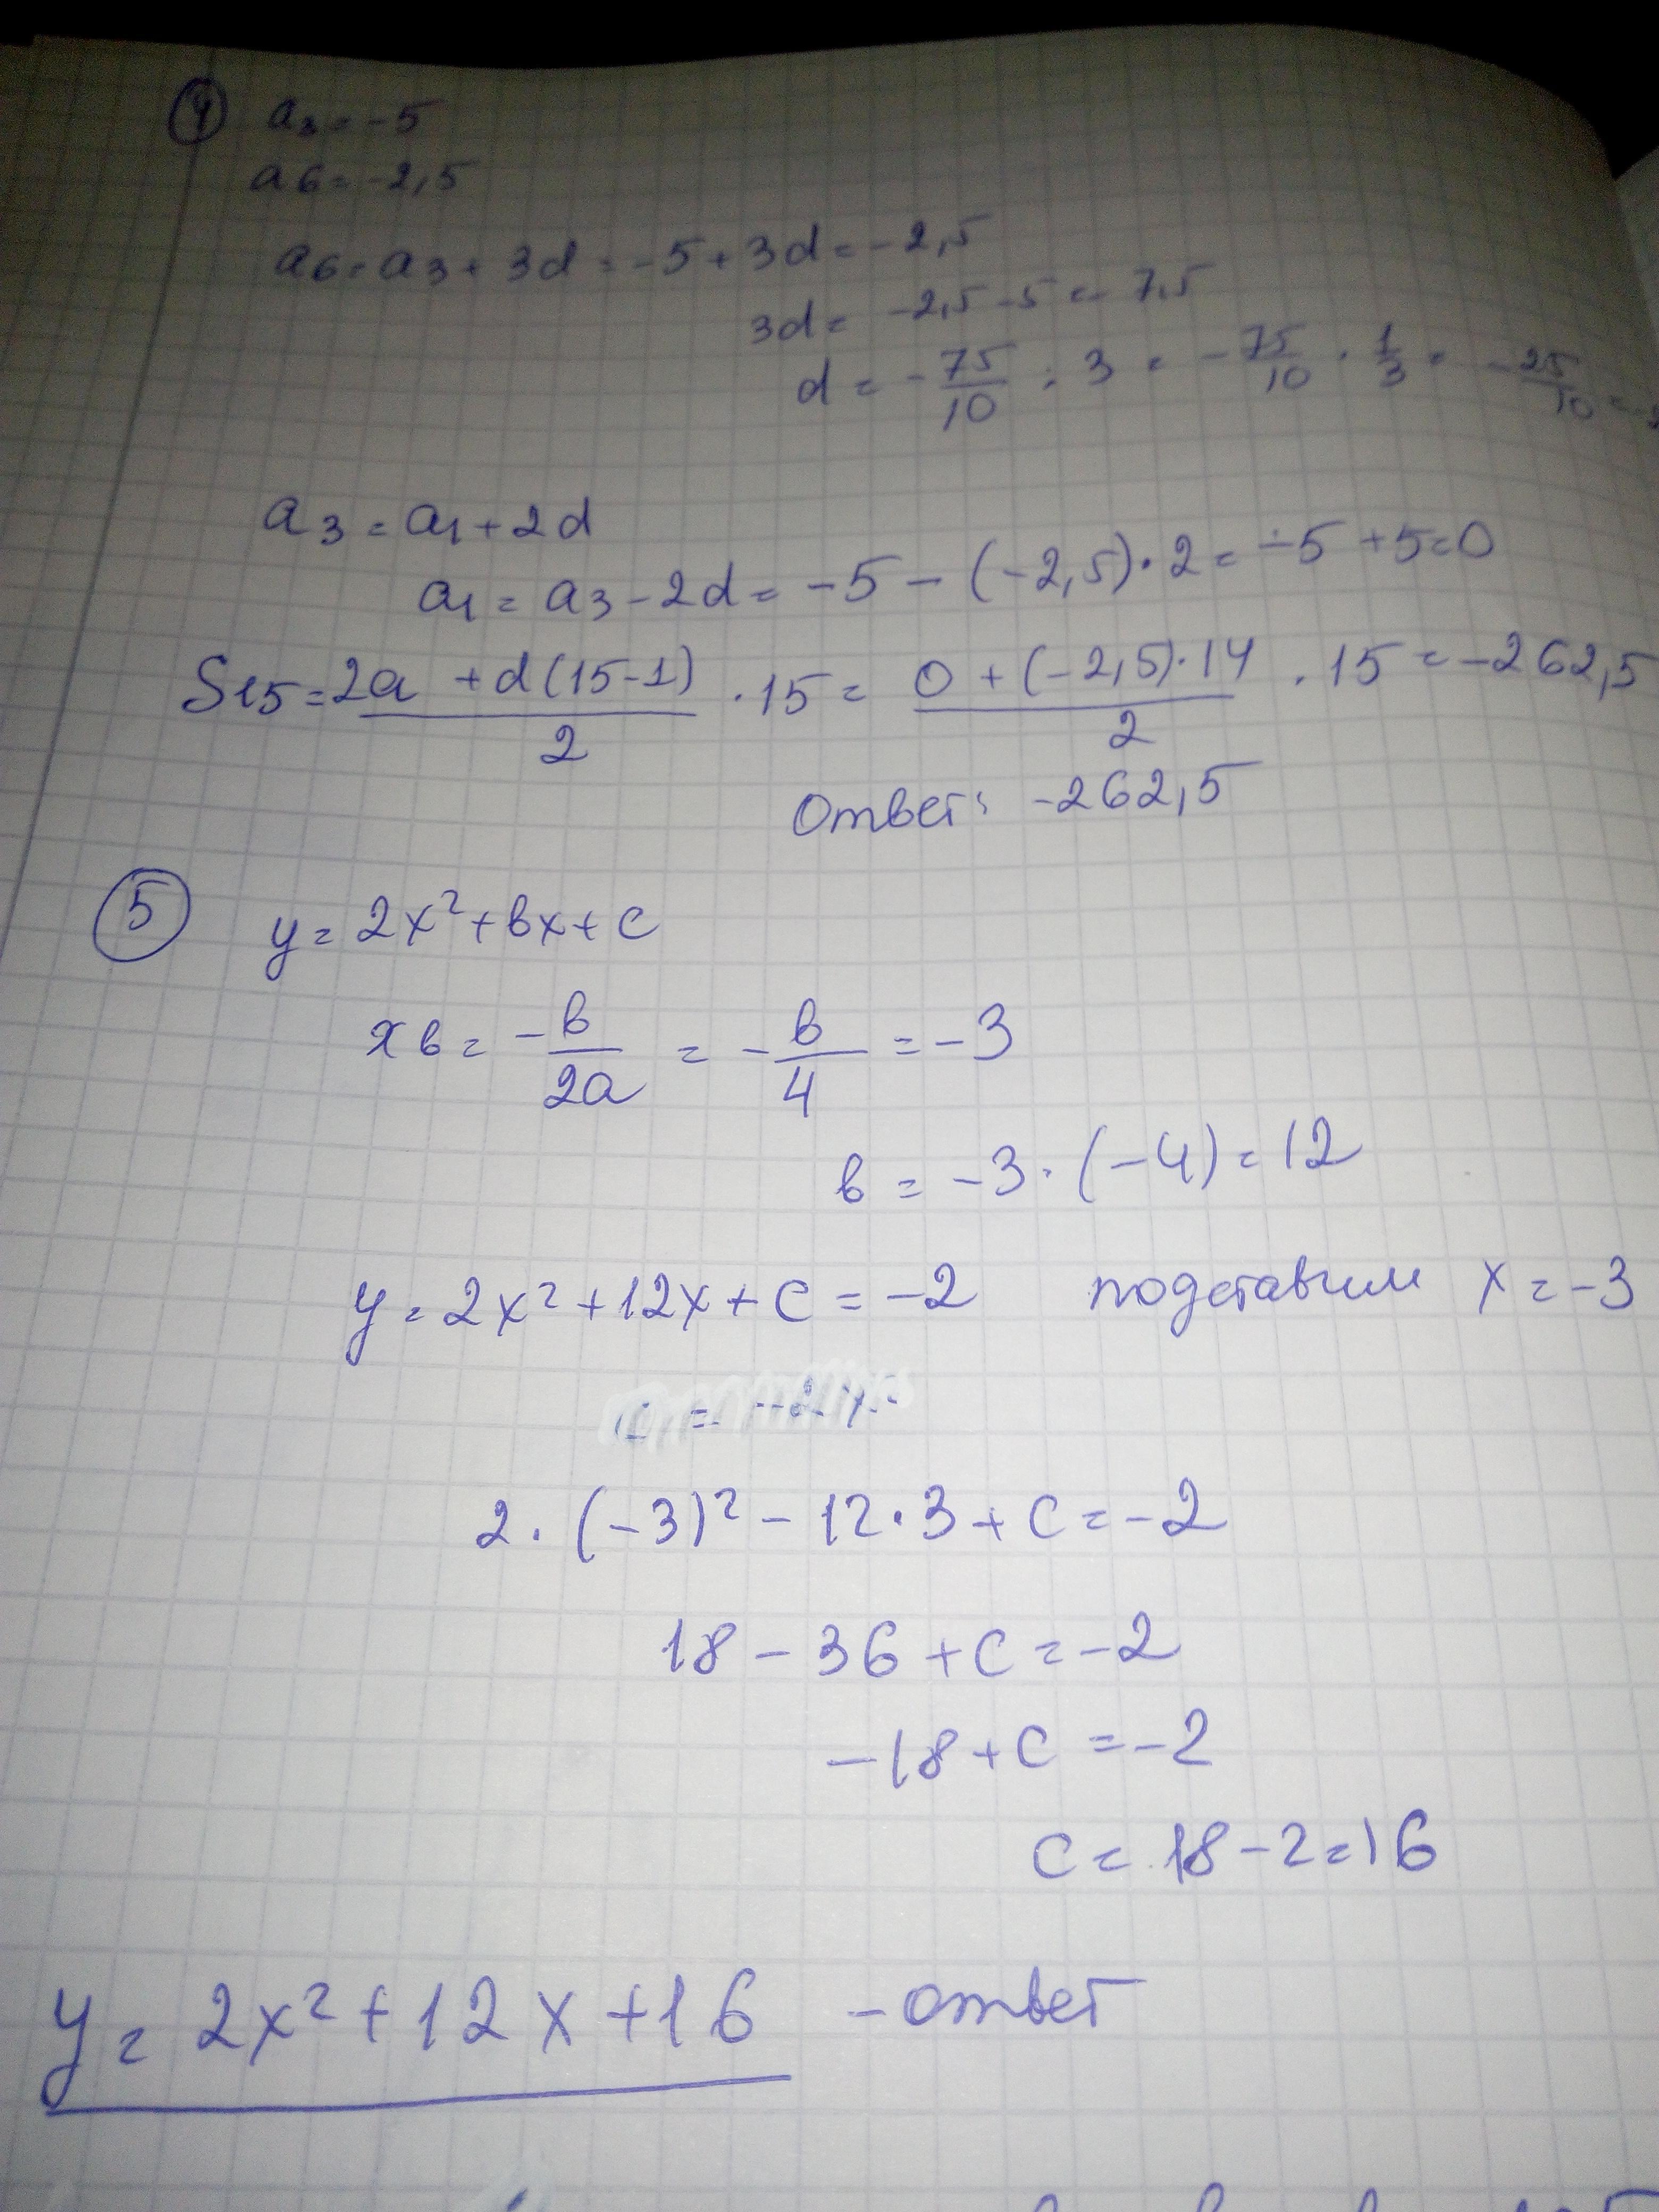 ④ a₃ = -5
a₆ = -2,5
a₆ = a₃ + 3d = -5 + 3d = -2,5
3d = -2,5 - 5 = - 7,5
d = -75/10 : 3 = -75/10 · 1/3 = -25/10 = -
a₃ = a₁ + 2d
a₁ = a₃ - 2d = -5 - (-2,5) · 2 = -5 + 5 = 0
S₁₅ = (2a + d(15-1))/2 · 15 = (0 + (-2,5) · 14)/2 · 15 = -262,5
Ответ: -262,5
⑤ y = 2x² + вx + c
xв = -в/2a = -в/4 = -3
в = -3 · (-4) = 12
y = 2x² + 12x + c = -2 подставим x = -3
2 · (-3)² - 12 · 3 + c = -2
18 - 36 + c = -2
-18 + c = -2
c = 18 - 2 = 16
y = 2x² + 12x + 16 - ответ